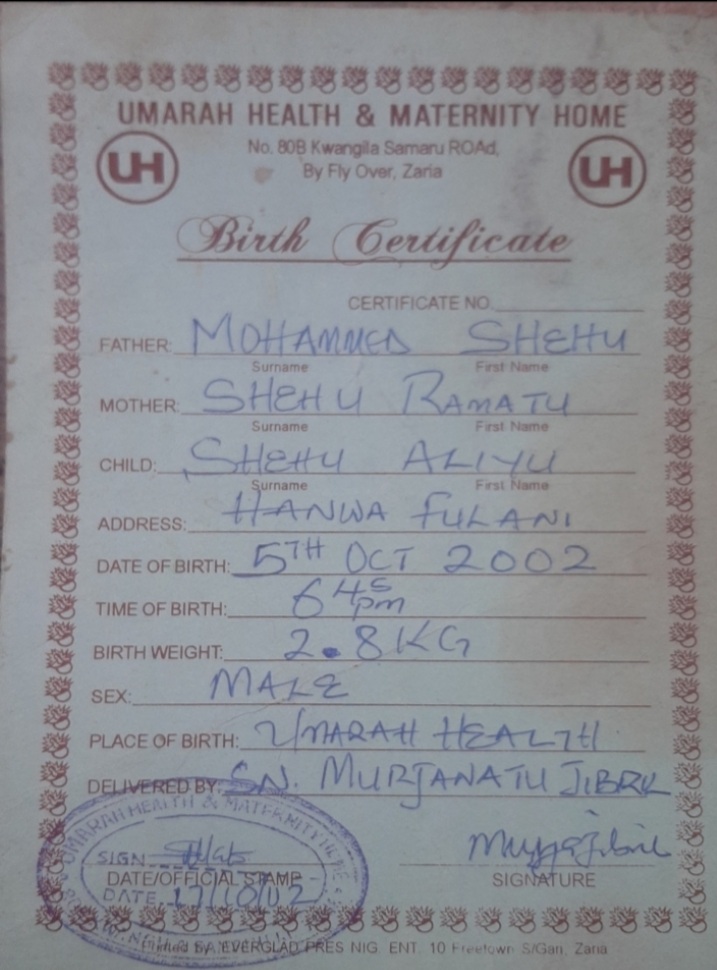 UMARAH HEALTH & MATERNITY HOME
UH
No. 80B Kwangila Samaru ROAd,
UH
By Fly Over, Zaria
Birth Certificate
CERTIFICATE NO.
FATHER: MOHAMMED SHEHU
Surname First Name
MOTHER: SHEHU RAMATU
Surname First Name
CHILD: SHEHU ALIYU
Surname First Name
ADDRESS: HANWA FULANI
DATE OF BIRTH: 5TH OCT 2002
TIME OF BIRTH: 645 pm
BIRTH WEIGHT: 2.8KG
SEX: MALE
PLACE OF BIRTH: UMARAH HEALTH
DELIVERED BY: SN. MURJANATU JIBRIL
UMARAH HEALTH & MATERNITY HOME
SIGN
DATE/OFFICIAL STAMP
SIGNATURE
DATE 17/10/02
Printed by EVERGLAD PRES NIG. ENT. 10 Freetown S/Gari, Zaria